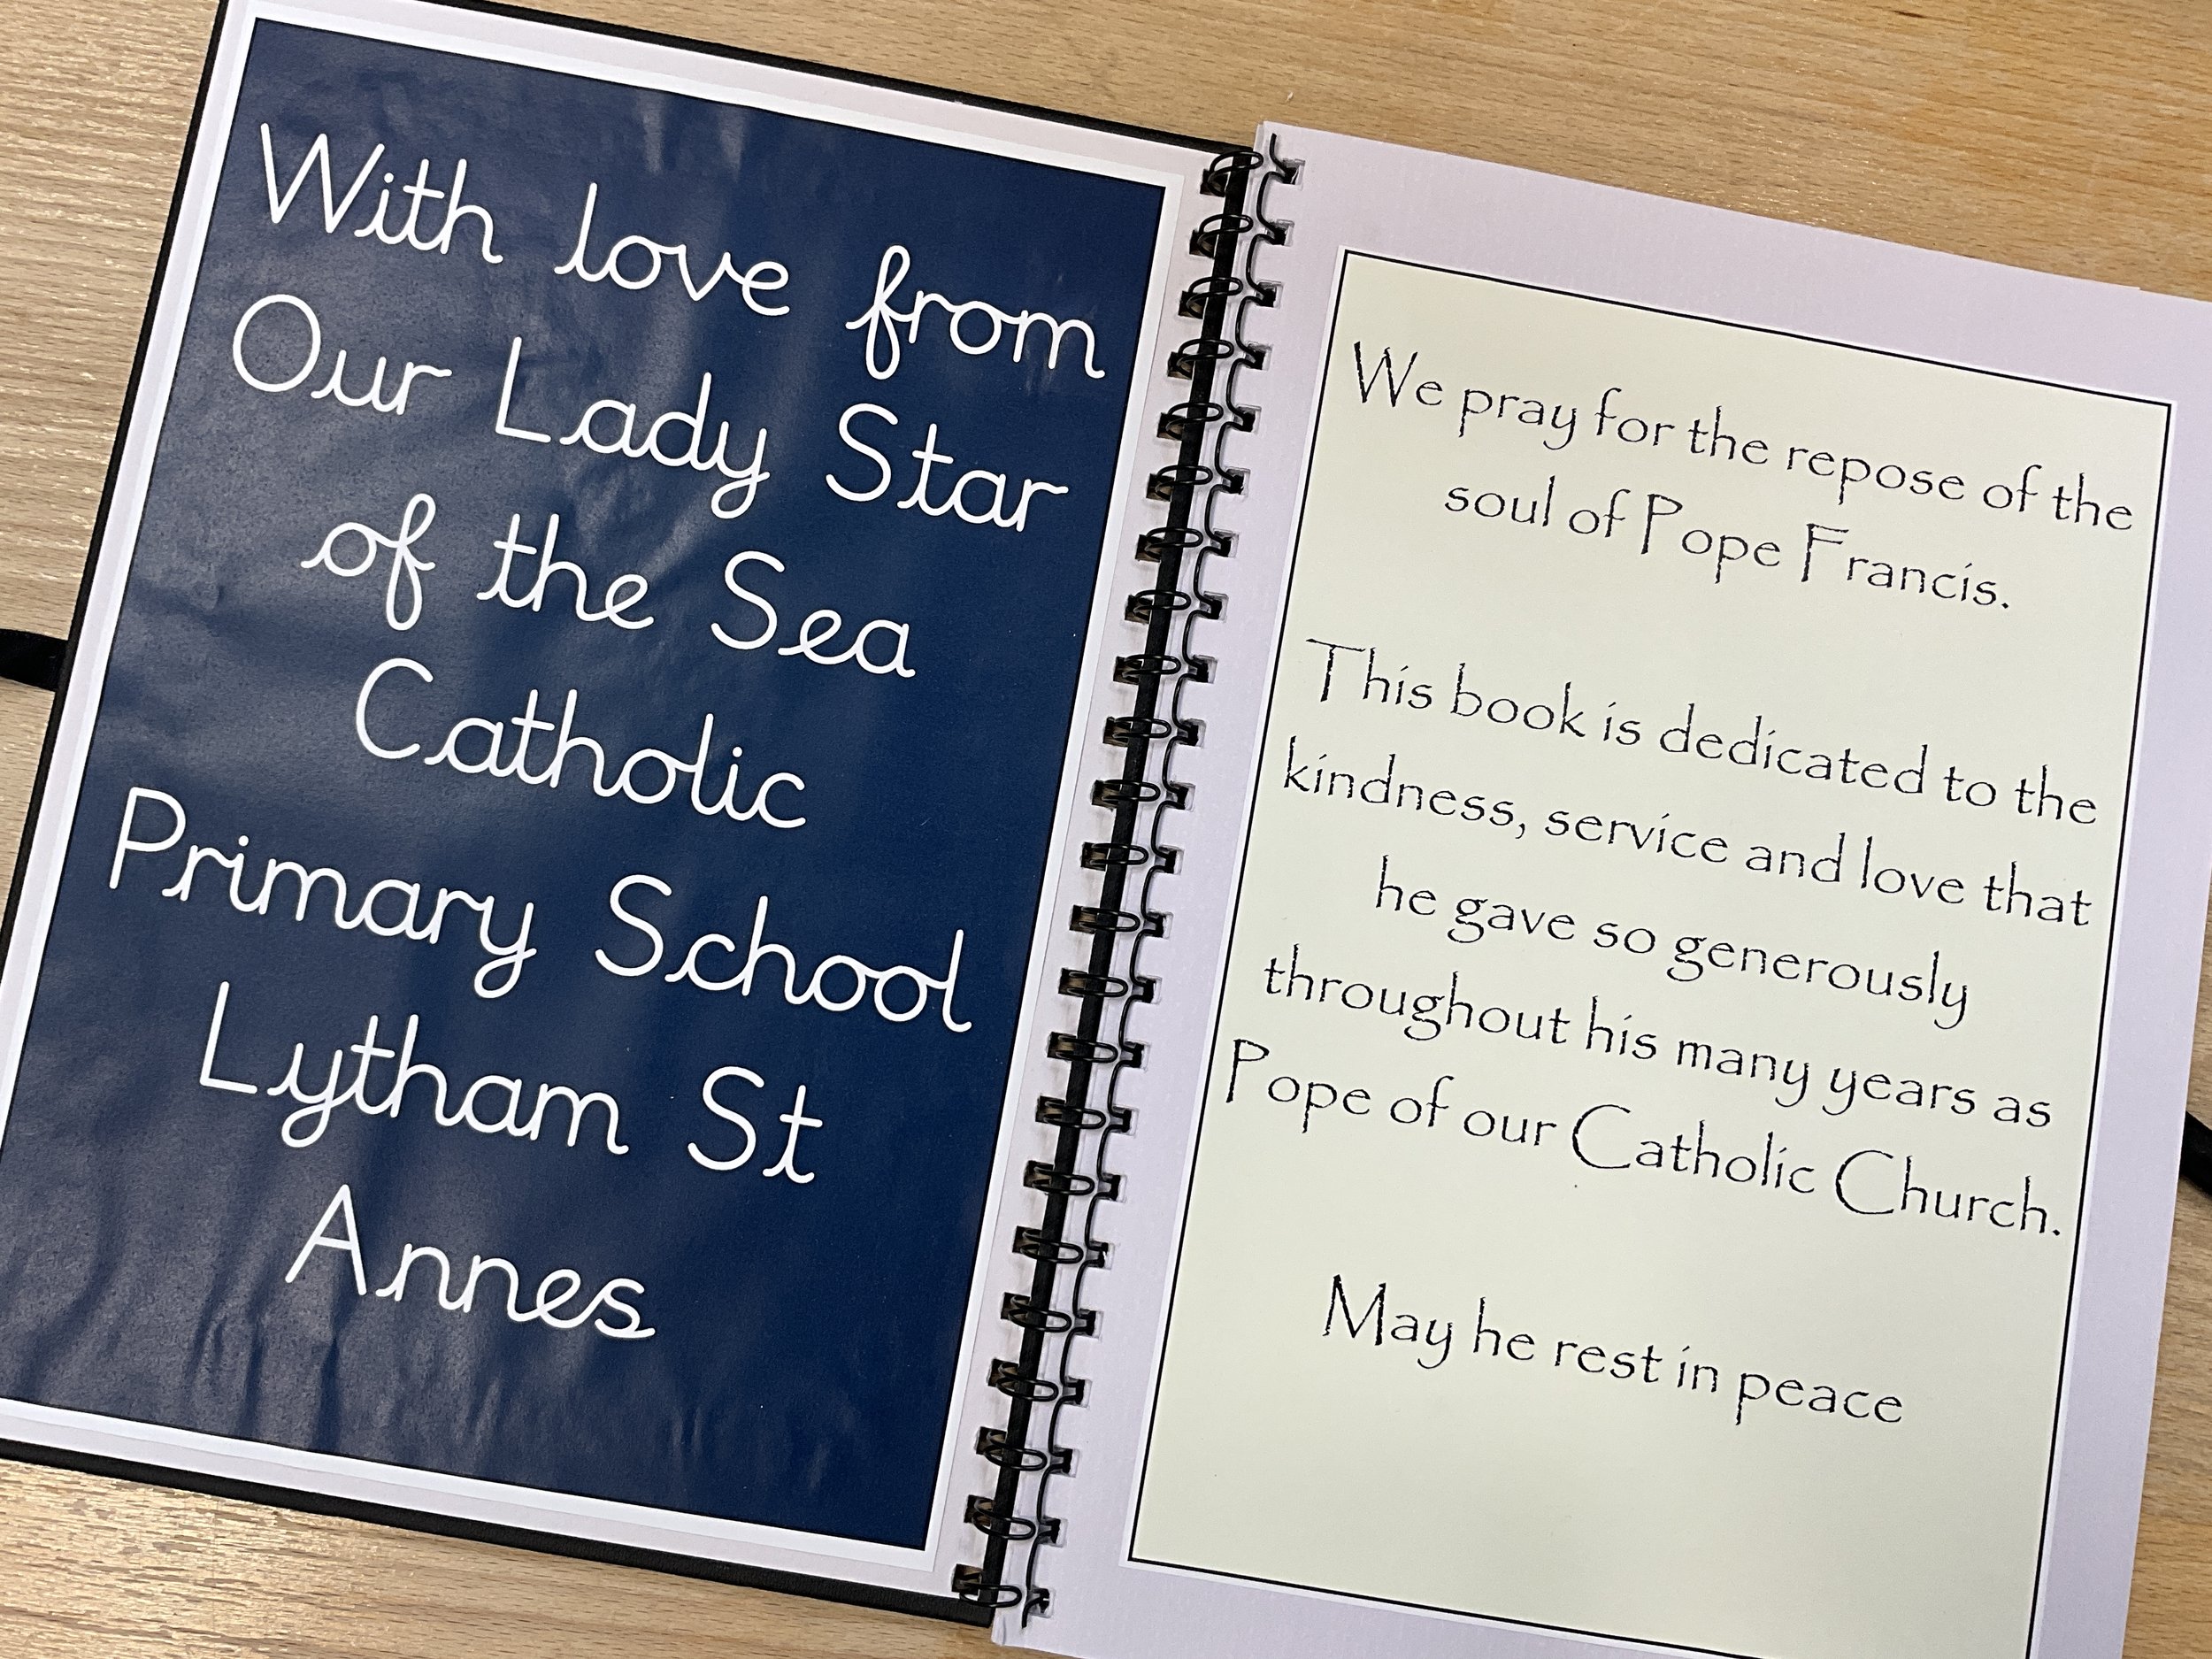 With love from
Our Lady Star
of the Sea
Catholic
Primary School
Lytham St
Annes
We pray for the repose of the
soul of Pope Francis.
This book is dedicated to the
kindness, service and love that
he gave so generously
throughout his many years as
Pope of our Catholic Church.
May he rest in peace